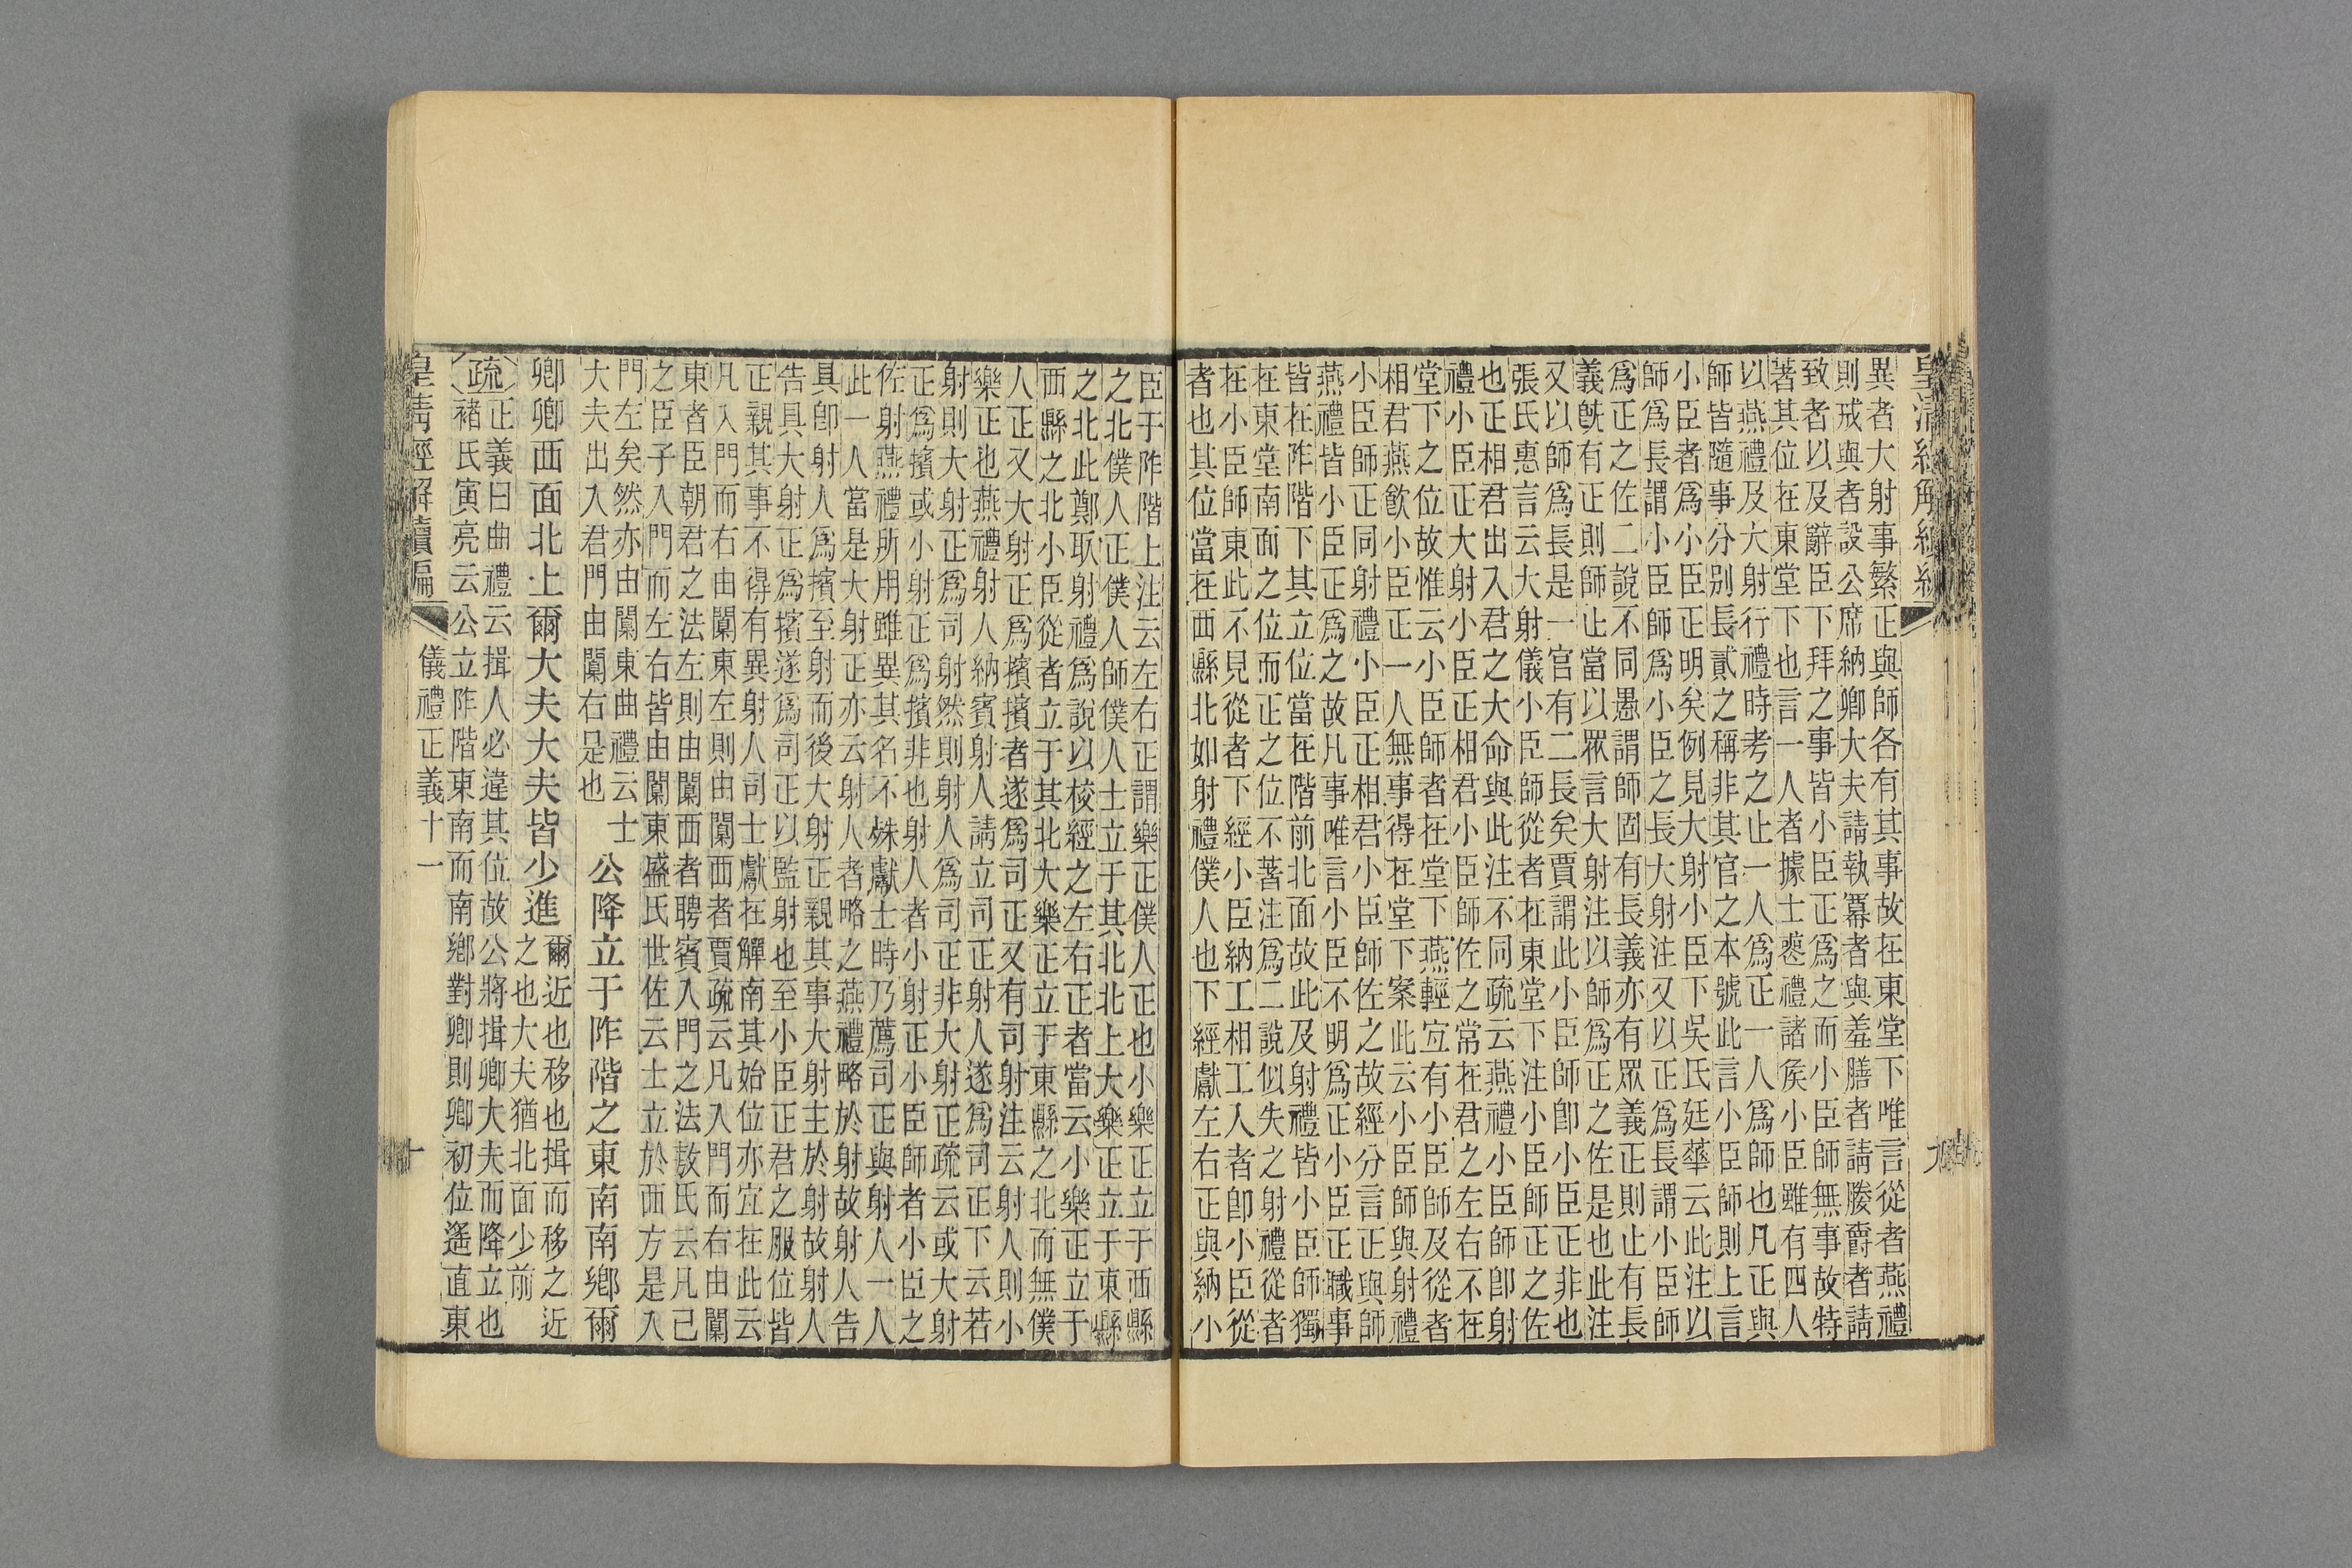 皇清經解續編
九
異者大射事繁正與師各有其事故在東堂下唯言從者燕禮
則戒與者設公席納卿大夫請執冪者與羞膳者請媵爵者請
致者以及辭臣下拜之事皆小臣正爲之而小臣師無事故特
著其位在東堂下也言一人者據士喪禮諸侯小臣雖有四人
以燕禮及大射行禮時考之止一人爲正一人爲師也凡正與
師皆隨事分別長貳之稱非其官之本號此言小臣師則上言
小臣者爲小臣正明矣例見大射小臣下吳氏廷華云此注以
師爲長謂小臣師爲小臣之長大射注又以正爲長謂小臣師
爲正之佐二說不同愚謂師固有長義亦有眾義正則止有長
義既有正則師止當以眾言大射注以師爲正之佐是也此注
又以師爲長是一官有二長矣賈謂此小臣師即小臣正非也
張氏惠言云大射儀小臣師從者在東堂下注小臣師正之佐
也正相君出入君之大命與此注不同疏云燕禮小臣師即射
禮小臣正大射小臣正相君小臣師佐之常在君之左右不在
堂下之位故惟云小臣師者在堂下燕輕宜有小臣師及從者
相君燕飲小臣正一人無事得在堂下案此云小臣師與射禮
小臣師正同射禮小臣正相君小臣師佐之故經分言正與師
燕禮皆小臣正爲之故凡事唯言小臣不明爲正小臣正職事
皆在阼階下其立位當在階前北面故此及射禮皆小臣師獨
在東堂南面之位而正之位不著注爲二說似失之射禮從者
在小臣師東此不見從者下經小臣納工相工人者即小臣從
者也其位當在西縣北如射禮僕人也下經獻左右正與納小
臣于阼階上注云左右正謂樂正僕人正也小樂正立于西縣
之北僕人正僕人師僕人士立于其北北上大樂正立于東縣
之北此鄭取射禮爲說以校經之左右正者當云小樂正立于
西縣之北小臣從者立于其北大樂正立于東縣之北而無僕
人正又大射正爲擯擯者遂爲司正又有司射注云射人則小
樂正也燕禮射人納賓射人請立司正射人遂爲司正下云若
射則大射正爲司射然則射人爲司正非大射正疏云或大射
正爲擯或小射正爲擯非也射人者小射正小臣師者小臣之
佐射燕禮所用雖異其名不殊獻士時乃薦司正與射人一人
此一人當是大射正亦云射人者略之燕禮略於射故射人告
具即射人爲擯至射而後大射正親其事大射主於射故射人
告具大射正爲擯遂爲司正以監射也至小臣正君之服位皆
正親其事不得有異射人司士獻在觶南其始位亦宜在此云
凡入門而右由闑東左則由闑西者賈疏云凡入門而右由闑
東者臣朝君之法左則由闑西者聘賓入門之法敖氏云凡己
之臣子入門而左右皆由闑東盛氏世佐云士立於西方是入
門左矣然亦由闑東曲禮云士
大夫出入君門由闑右是也
公降立于阼階之東南南鄉爾
卿卿西面北上爾大夫大夫皆少進
爾近也移也揖而移之近
之也大夫猶北面少前
疏
正義曰曲禮云揖人必違其位故公將揖卿大夫而降立也
褚氏寅亮云公立阼階東南而南鄉對卿則卿初位遙直東
皇清經解續編
儀禮正義十一
十